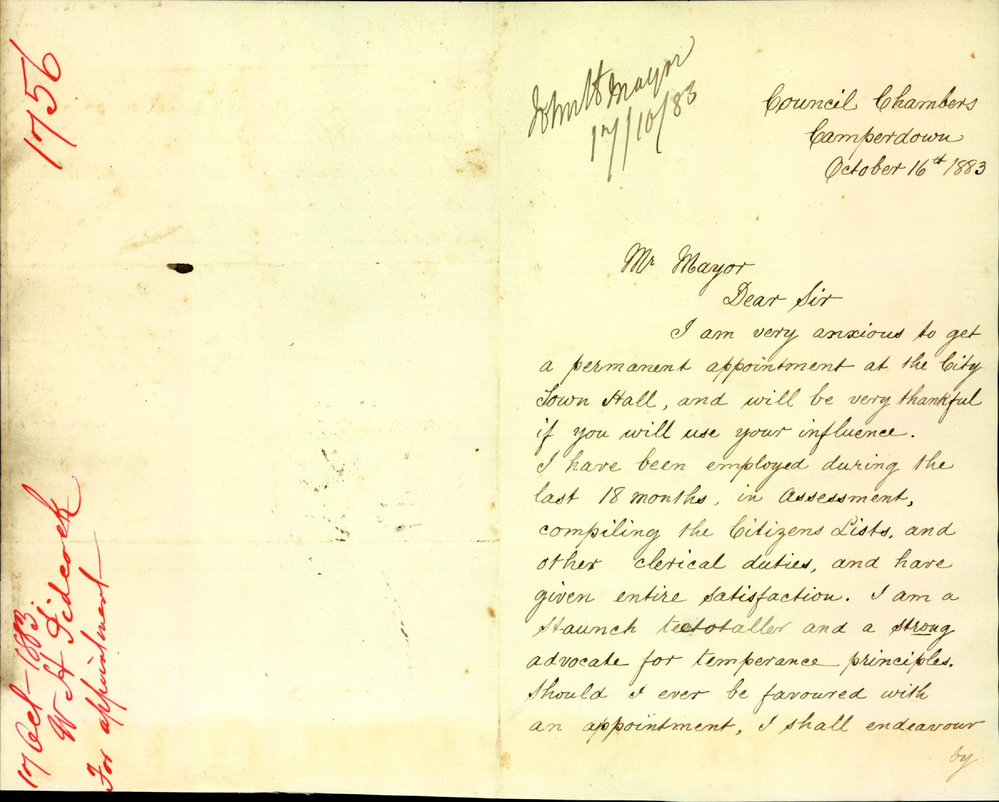 1756
17 Oct - 1883.
W H Pidcock
For appointment
John H Mayor
17/10/83
Council Chambers
Camperdown
October 16th 1883
Mr Mayor
Dear Sir
I am very anxious to get
a permanent appointment at the City
Town Hall, and will be very thankful
if you will use your influence.
I have been employed during the
last 18 months, in Assessment,
compiling the Citizens Lists, and
other clerical duties, and have
given entire satisfaction. I am a
staunch teetotaller and a strong
advocate for temperance principles.
Should I ever be favoured with
an appointment, I shall endeavour
by